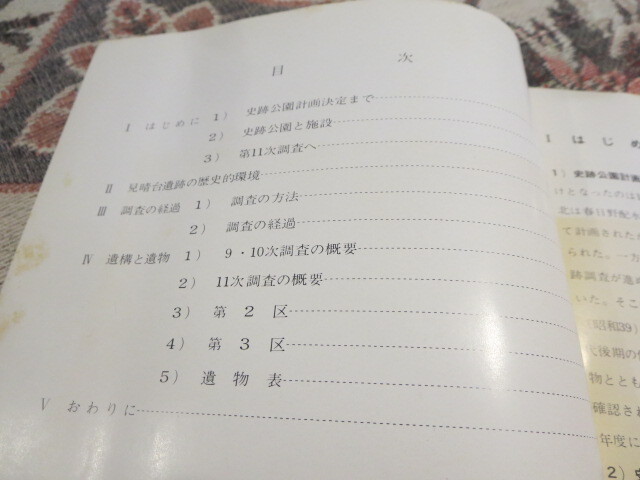 目次
I はじめに 1) 史跡公園計画決定まで
2) 史跡公園と施設
3) 第11次調査へ
II 見晴台遺跡の歴史的環境
III 調査の経過 1) 調査の方法
2) 調査の経過
IV 遺構と遺物 1) 9・10次調査の概要
2) 11次調査の概要
3) 第2区
4) 第3区
5) 遺物表
V おわりに
I はじめ
1) 史跡公園計画
けとなったのは
北は春日野配水
て計画されたが
られた。一方
跡調査が進め
いた。そこ
(昭和39)
代後期の
物ととも
確認され
年度に
2)